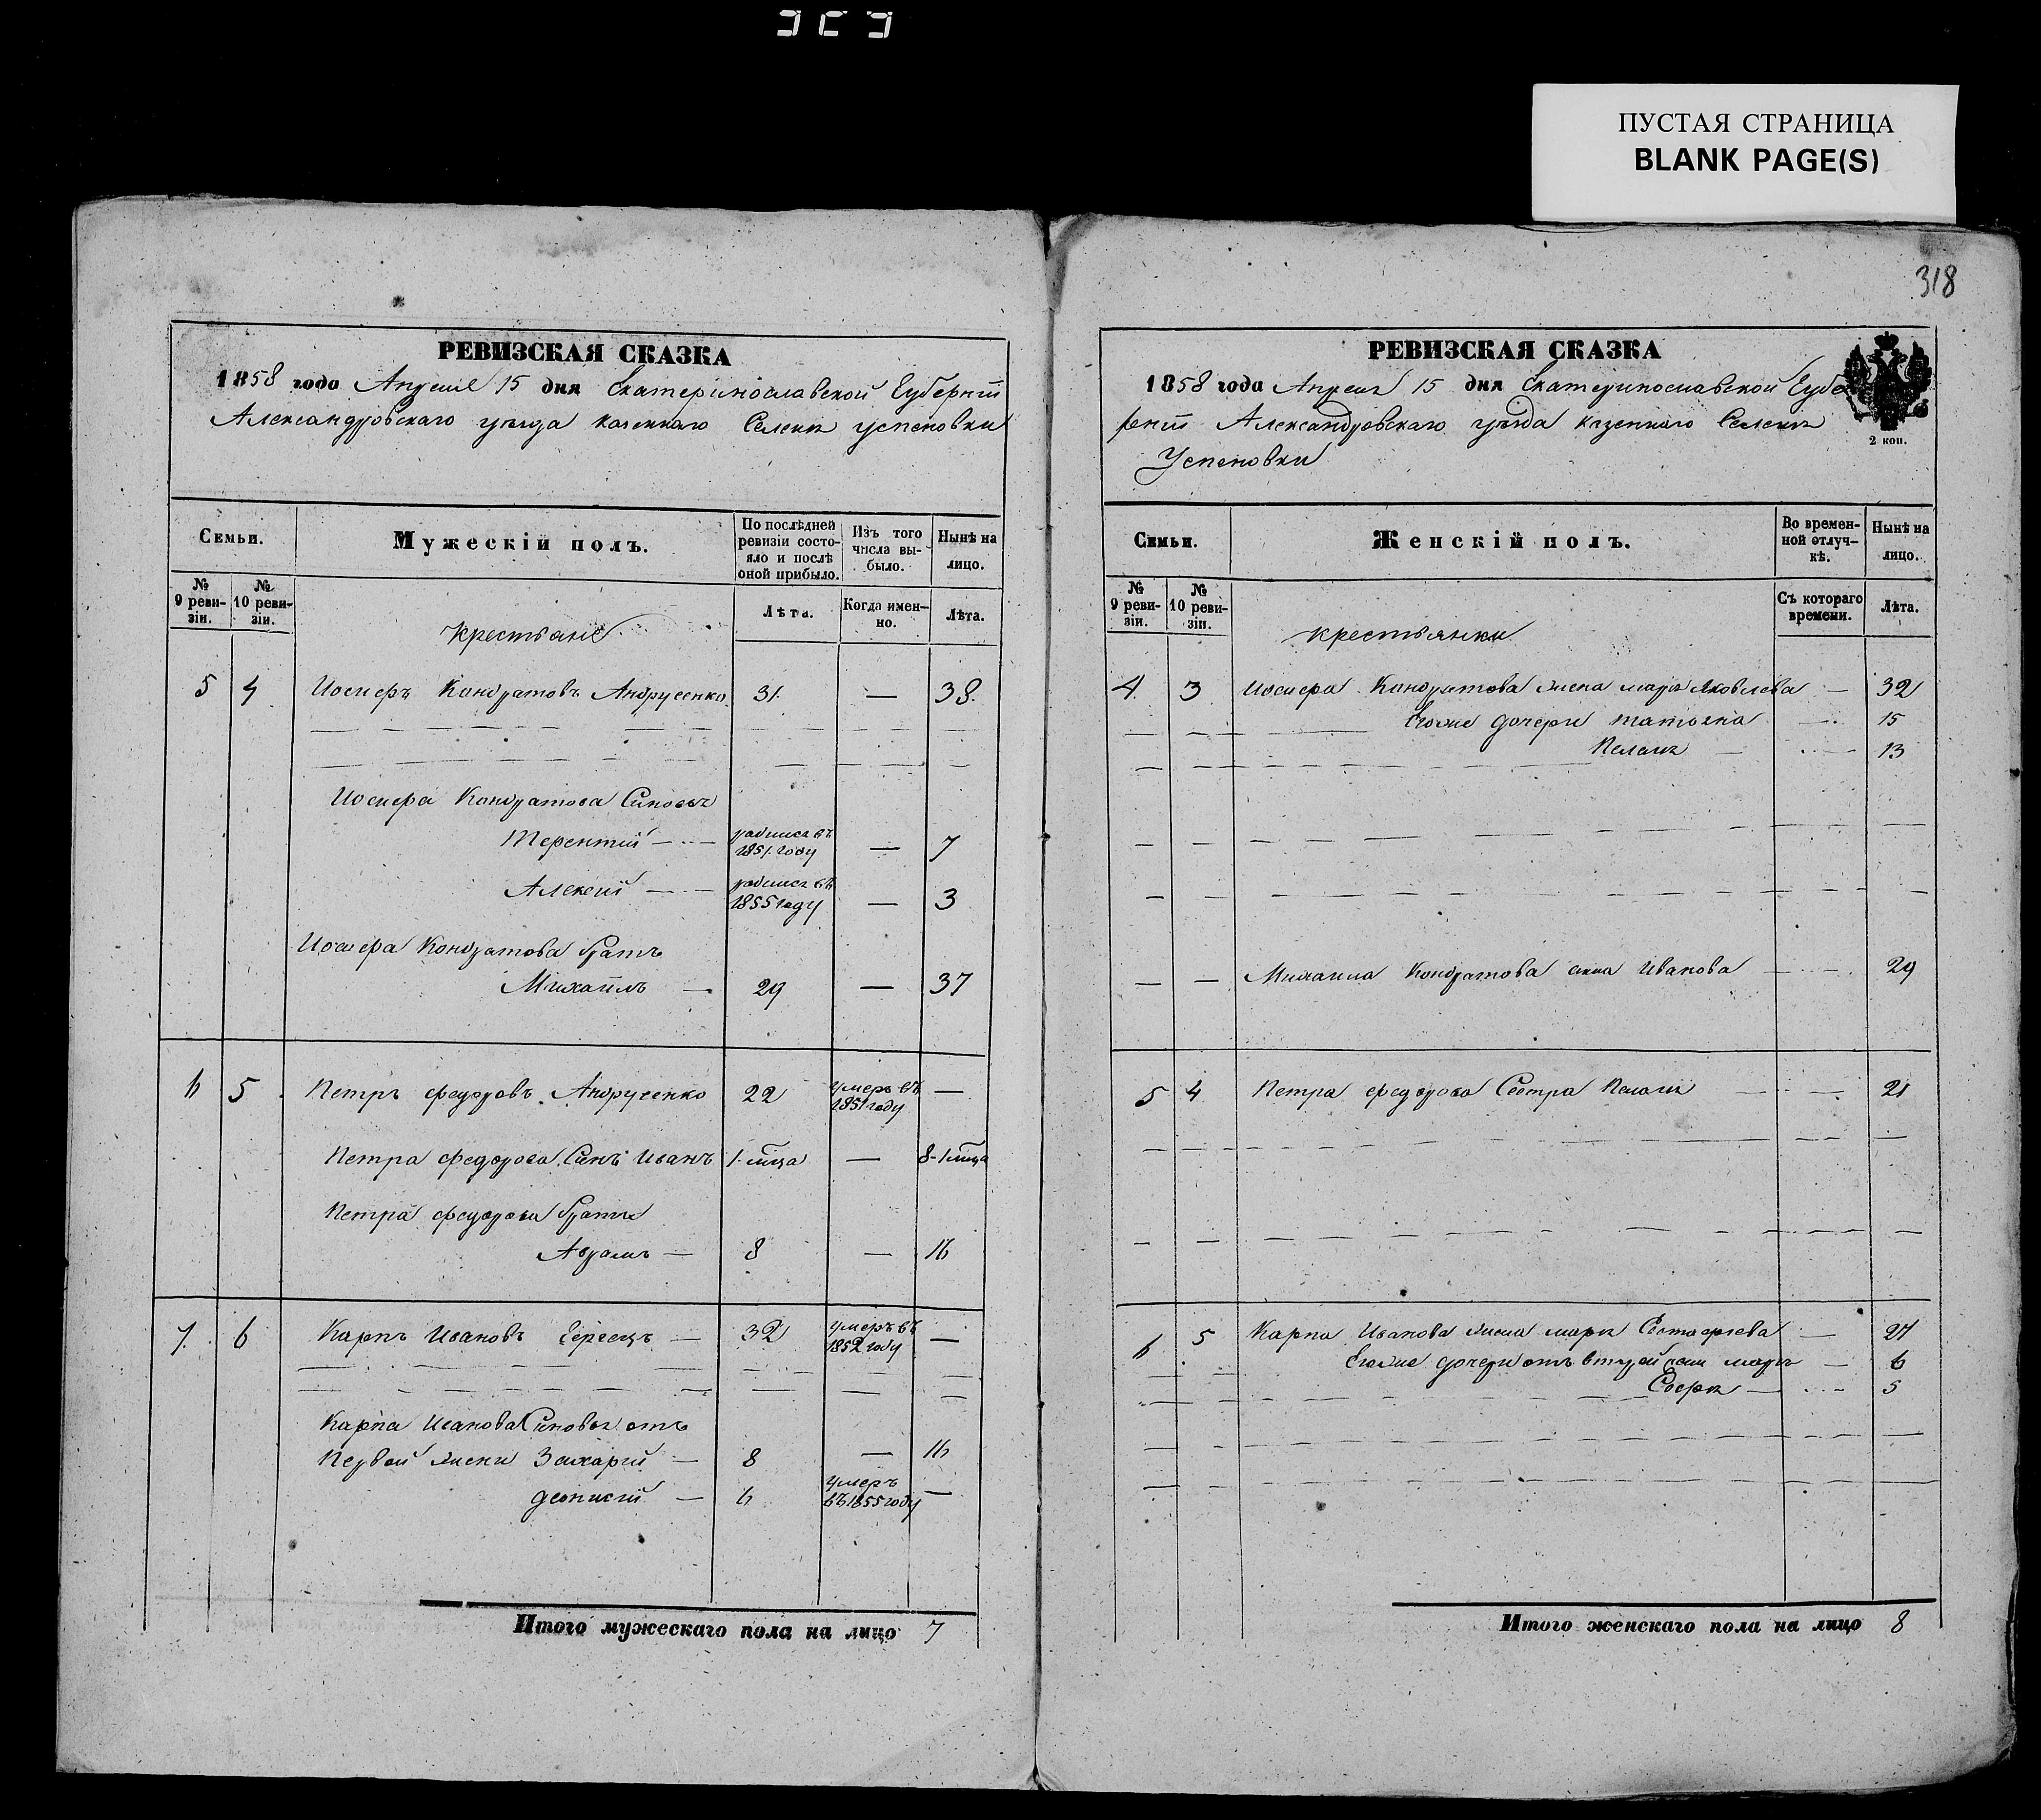 ПУСТАЯ СТРАНИЦА
BLANK PAGE(S)
318
РЕВИЗСКАЯ СКАЗКА
1858 года Апреля 15 дня Екатеринославской Губерніи
Александровскаго уѣзда казеннаго Селенія Успеновки
Семьи.
Мужескій полъ.
По послѣдней ревизіи состояло и послѣ оной прибыло.
Изъ того числа выбыло.
Нынѣ на лицо.
№ 9 ревизіи.
№ 10 ревизіи.
Крестьяне
Лѣта.
Когда именно.
Лѣта.
5 4 Иосифъ Кондратовъ Андрусенко 31. — 38.
Иосифа Кондратова Сыновья
Терентій — родился въ 1851 году — 7
Алексій — родился въ 1855 году — 3
Иосифа Кондратова братъ
Михаилъ — 29 — 37
6 5 Петръ Федоровъ Андрусенко 22 умеръ въ 1851 году —
Петра Федорова Сынъ Иванъ 1 мца — 8-1 мца
Петра Федорова братъ
Абрамъ — 8 — 16
7. 6 Карпъ Ивановъ — 32 умеръ въ 1852 году —
Карпа Иванова Сыновья отъ
Первой жены Захарій — 8 — 16
Деонисій — 6 умеръ въ 1855 году —
Итого мужескаго пола на лицо 7
РЕВИЗСКАЯ СКАЗКА
1858 года Апреля 15 дня Екатеринославской Губе
рніи Александровскаго уѣзда казеннаго Селенія
Успеновки
2 коп.
Семьи.
Женскій полъ.
Во временной отлучкѣ.
Нынѣ на лицо.
№ 9 ревизіи.
№ 10 ревизіи.
крестьянки
Съ котораго времени.
Лѣта.
4. 3 Иосифа Кондратова жена марія Яковлева — 32
Егоже дочери татьяна — 15
Пелагія — 13
Михаила Кондратова Иванова — 29
5 4 Петра Федорова Сестра Пелагія — 21
6 5 Карпа Иванова жена марія — 27
Егоже дочери отъ второй жены марія — 6
Софія — 5
Итого женскаго пола на лицо 8